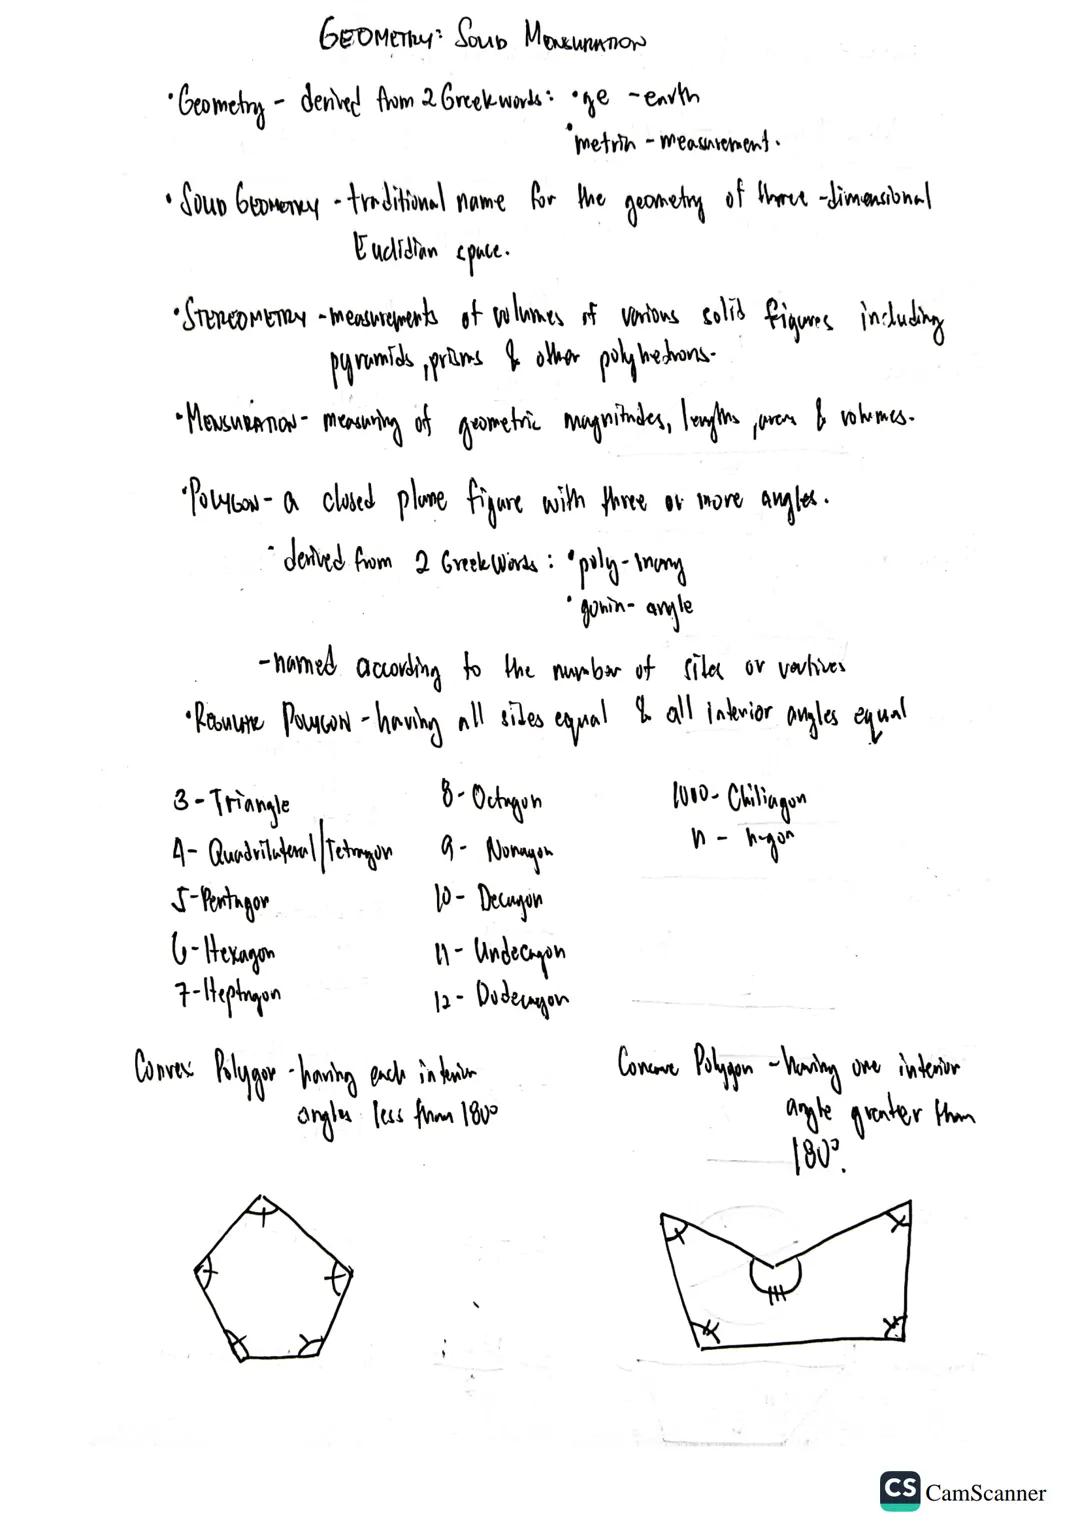 GEOMETRY: SOLID MENSURATION
•Geometry - derived from 2 Greek words: •ge - earth
•metrin - measurement.
•SOLID GEOMETRY - traditional name for the geometry of three-dimensional
Euclidian space.
•STEREOMETRY - measurements of volumes of various solid figures including
pyramids, prisms & other polyhedrons.
•MENSURATION - measuring of geometric magnitudes, lengths, areas & volumes.
•POLYGON - a closed plane figure with three or more angles.
• derived from 2 Greek Words: •poly - many
•gonin - angle
- named according to the number of sides or vertices
•REGULAR POLYGON - having all sides equal & all interior angles equal
3 - Triangle
4 - Quadrilateral/Tetragon
5 - Pentagon
6 - Hexagon
7 - Heptagon
8 - Octagon
9 - Nonagon
10 - Decagon
11 - Undecagon
12 - Dodecagon
1000 - Chiliagon
n - n-gon
Convex Polygon - having each interior
angles less than 180°
Concave Polygon - having one interior
angle greater than
180°.
CS CamScanner